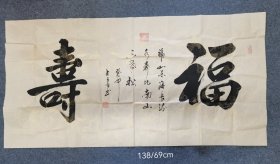 福
福如东海長流
水寿比南山
不老松
壽
138/69cm